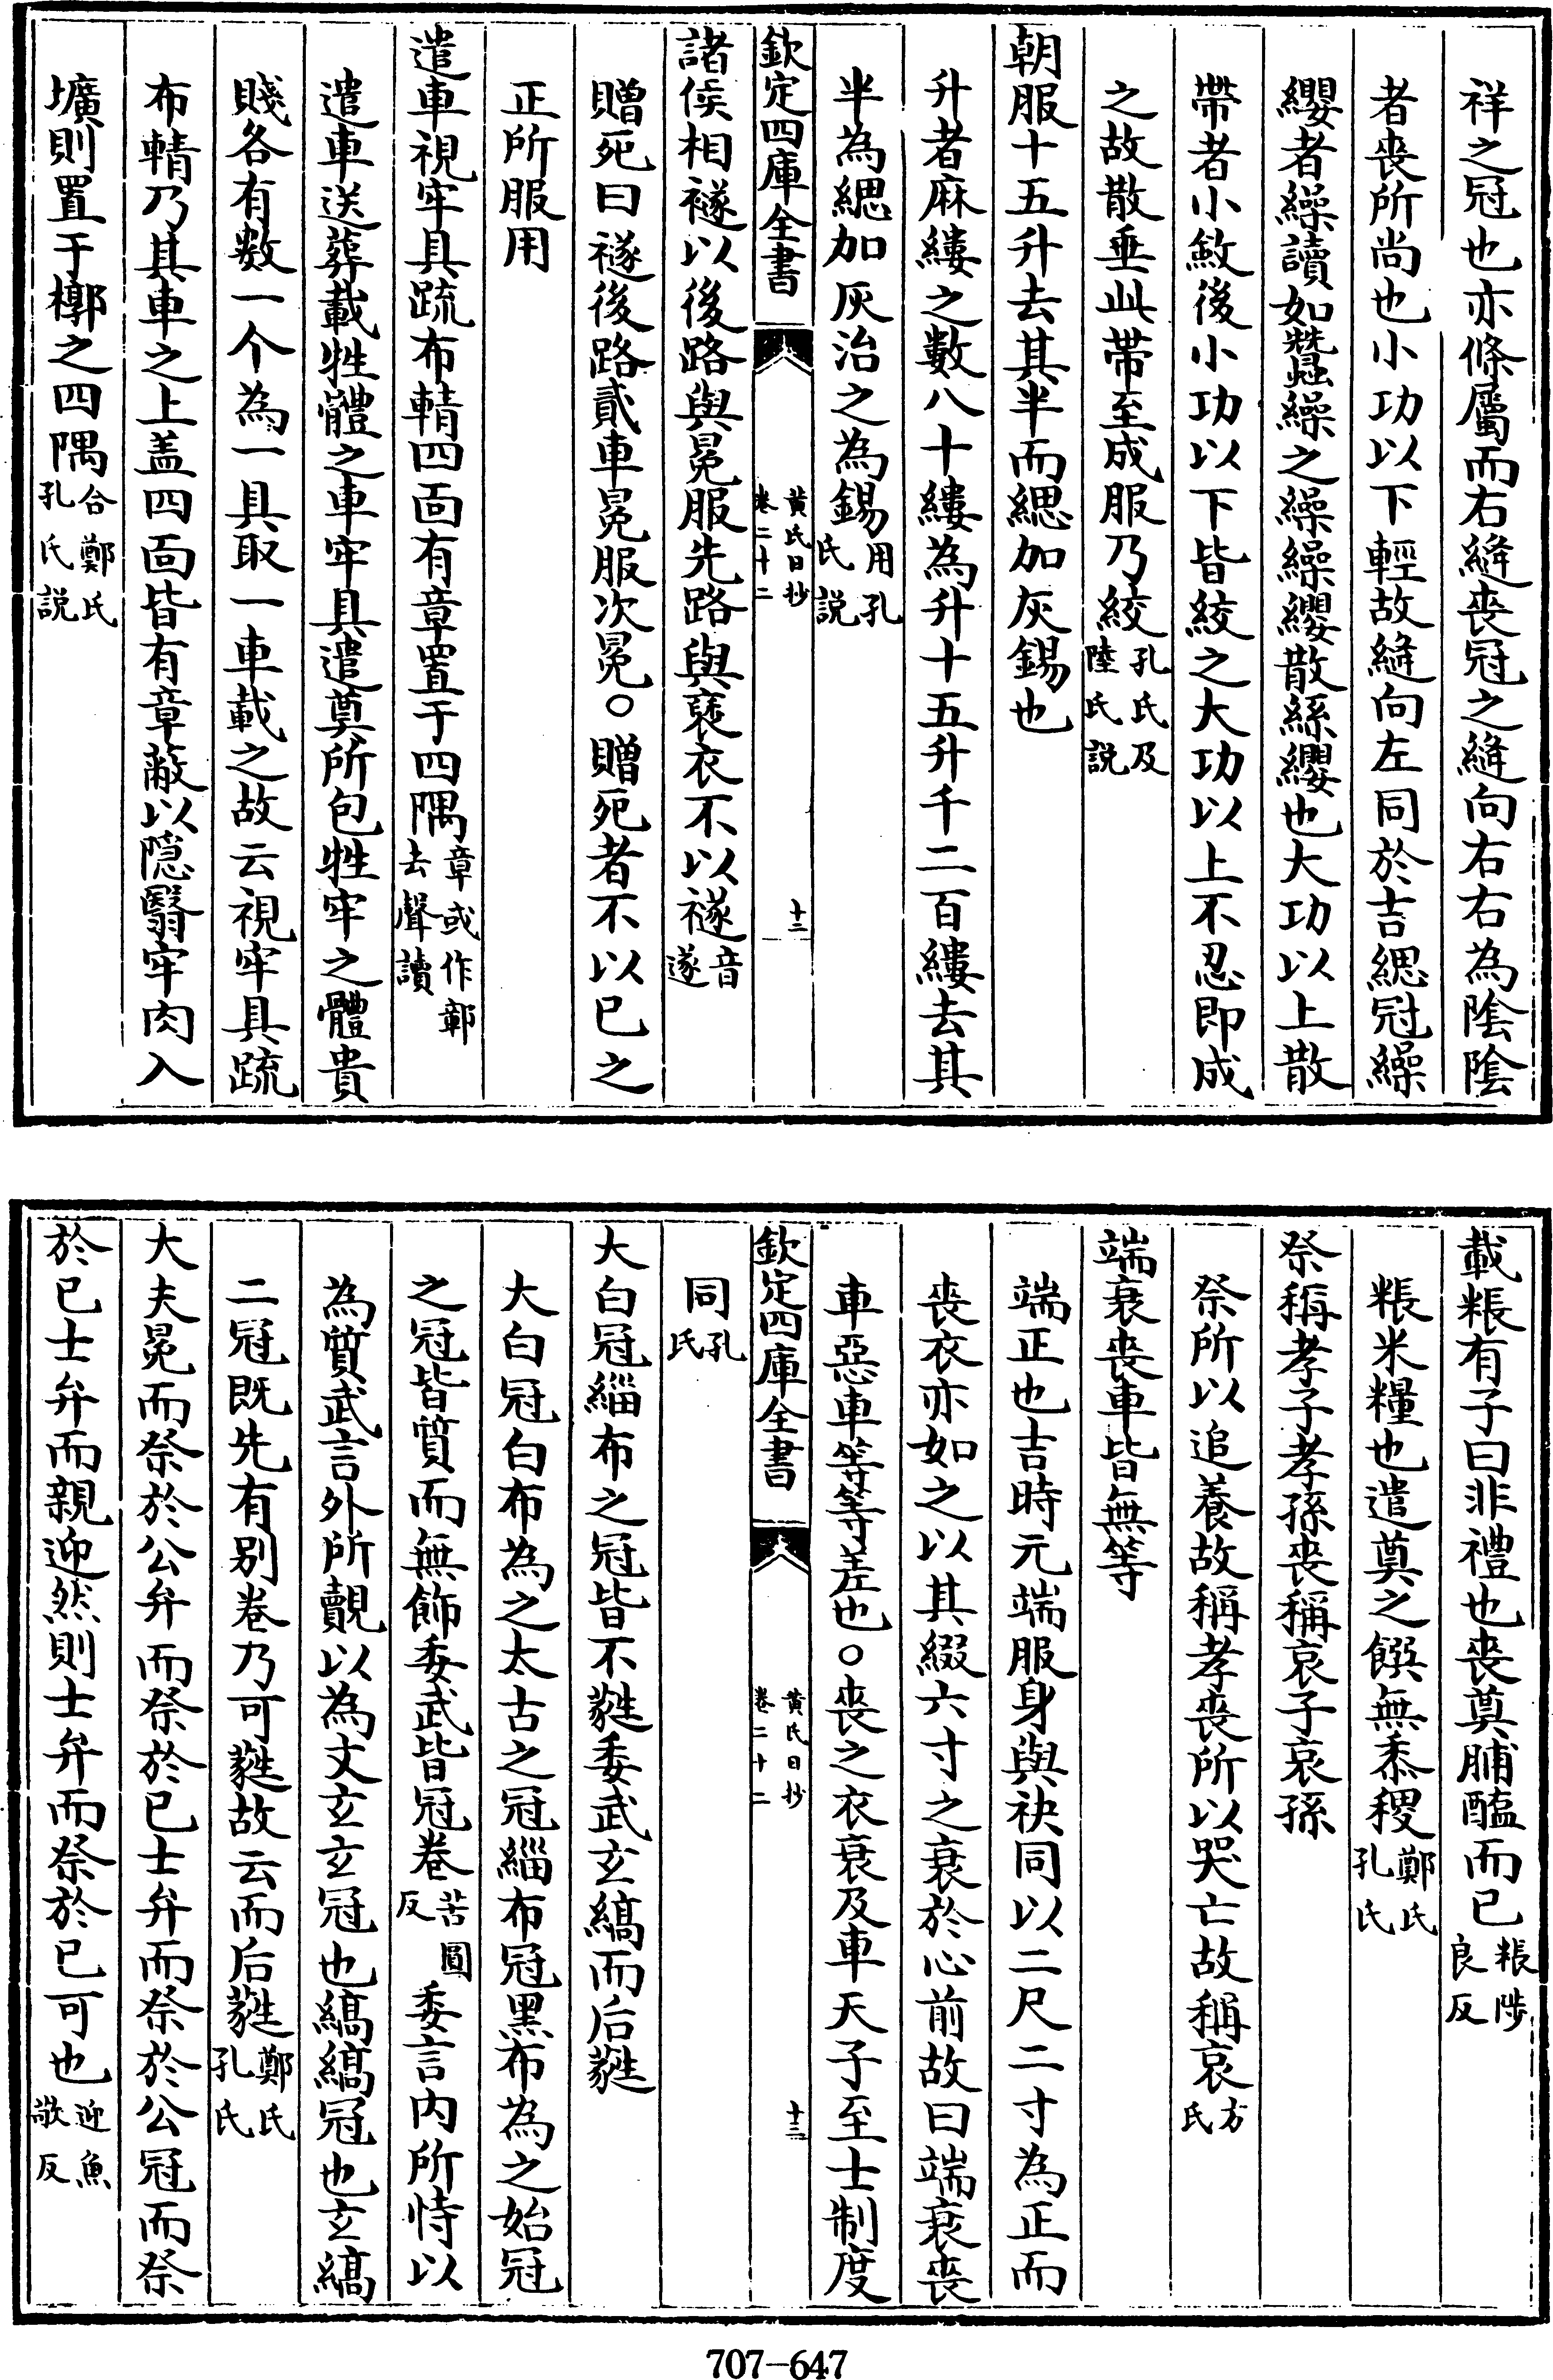 祥之冠也亦條屬而右縫喪冠之縫向右右為陰陰
者喪所尚也小功以下輕故縫向左同於吉緦冠繰
纓者繰讀如蠶繰之繰繰纓散絲纓也大功以上散
帶者小斂後小功以下皆絞之大功以上不忍即成
之故散垂此帶至成服乃絞孔氏及陸氏説
朝服十五升去其半而緦加灰錫也
升者麻縷之數八十縷為升十五升千二百縷去其
半為緦加灰治之為錫用孔氏説
欽定四庫全書
黄氏日抄卷二十二
十二
諸侯相襚以後路與冕服先路與襃衣不以襚音遂
贈死曰襚後路貳車冕服次冕○贈死者不以已之
正所服用
遣車視牢具疏布輤四面有章置于四隅章或作鄣去聲讀
遣車送葬載牲體之車牢具遣奠所包牲牢之體貴
賤各有數一个為一具取一車載之故云視牢具疏
布輤乃其車之上盖四面皆有章蔽以隠翳牢肉入
壙則置于槨之四隅合鄭氏孔氏説
載粻有子曰非禮也喪奠脯醢而已粻陟良反
粻米糧也遣奠之饌無黍稷鄭氏孔氏
祭稱孝子孝孫喪稱哀子哀孫
祭所以追養故稱孝喪所以哭亡故稱哀方氏
端衰喪車皆無等
端正也吉時元端服身與袂同以二尺二寸為正而
喪衣亦如之以其綴六寸之衰於心前故曰端衰喪
車惡車等等差也○喪之衣衰及車天子至士制度
欽定四庫全書
黄氏日抄卷二十二
十三
同孔氏
大白冠緇布之冠皆不蕤委武玄縞而后蕤
大白冠白布為之太古之冠緇布冠黑布為之始冠
之冠皆質而無飾委武皆冠卷苦圓反委言内所恃以
為質武言外所觀以為文玄玄冠也縞縞冠也玄縞
二冠既先有别卷乃可蕤故云而后蕤鄭氏孔氏
大夫冕而祭於公弁而祭於已士弁而祭於公冠而祭
於已士弁而親迎然則士弁而祭於已可也迎魚敬反
707-647